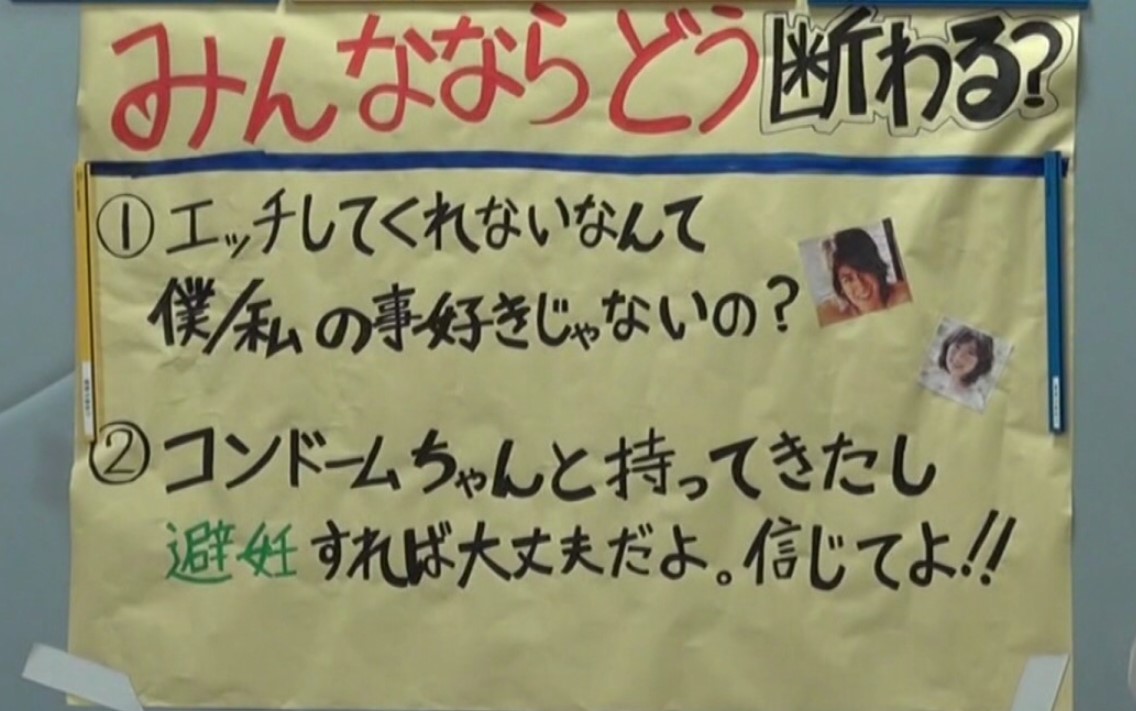 みんなならどう断わる?
①エッチしてくれないなんて
僕/私の事好きじゃないの?
②コンドームちゃんと持ってきたし
避妊すれば大丈夫だよ。信じてよ!!